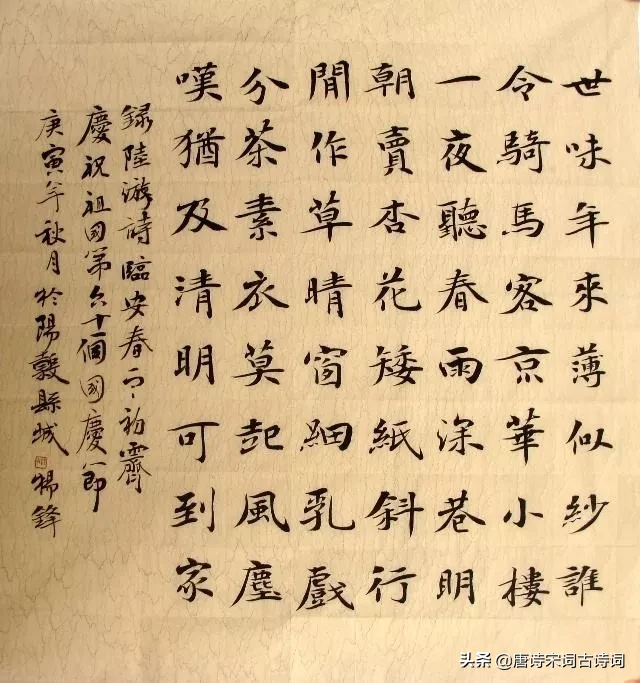 世味年來薄似紗誰
令騎馬客京華小樓
一夜聽春雨深巷明
朝賣杏花矮紙斜行
閒作草晴窗細乳戲
分茶素衣莫起風塵
嘆猶及清明可到家
錄陸游詩臨安春雨初霽
慶祝祖国第六十一個国慶節
庚寅年秋月於陽穀縣城 楊鋒
头条 @唐诗宋词古诗词